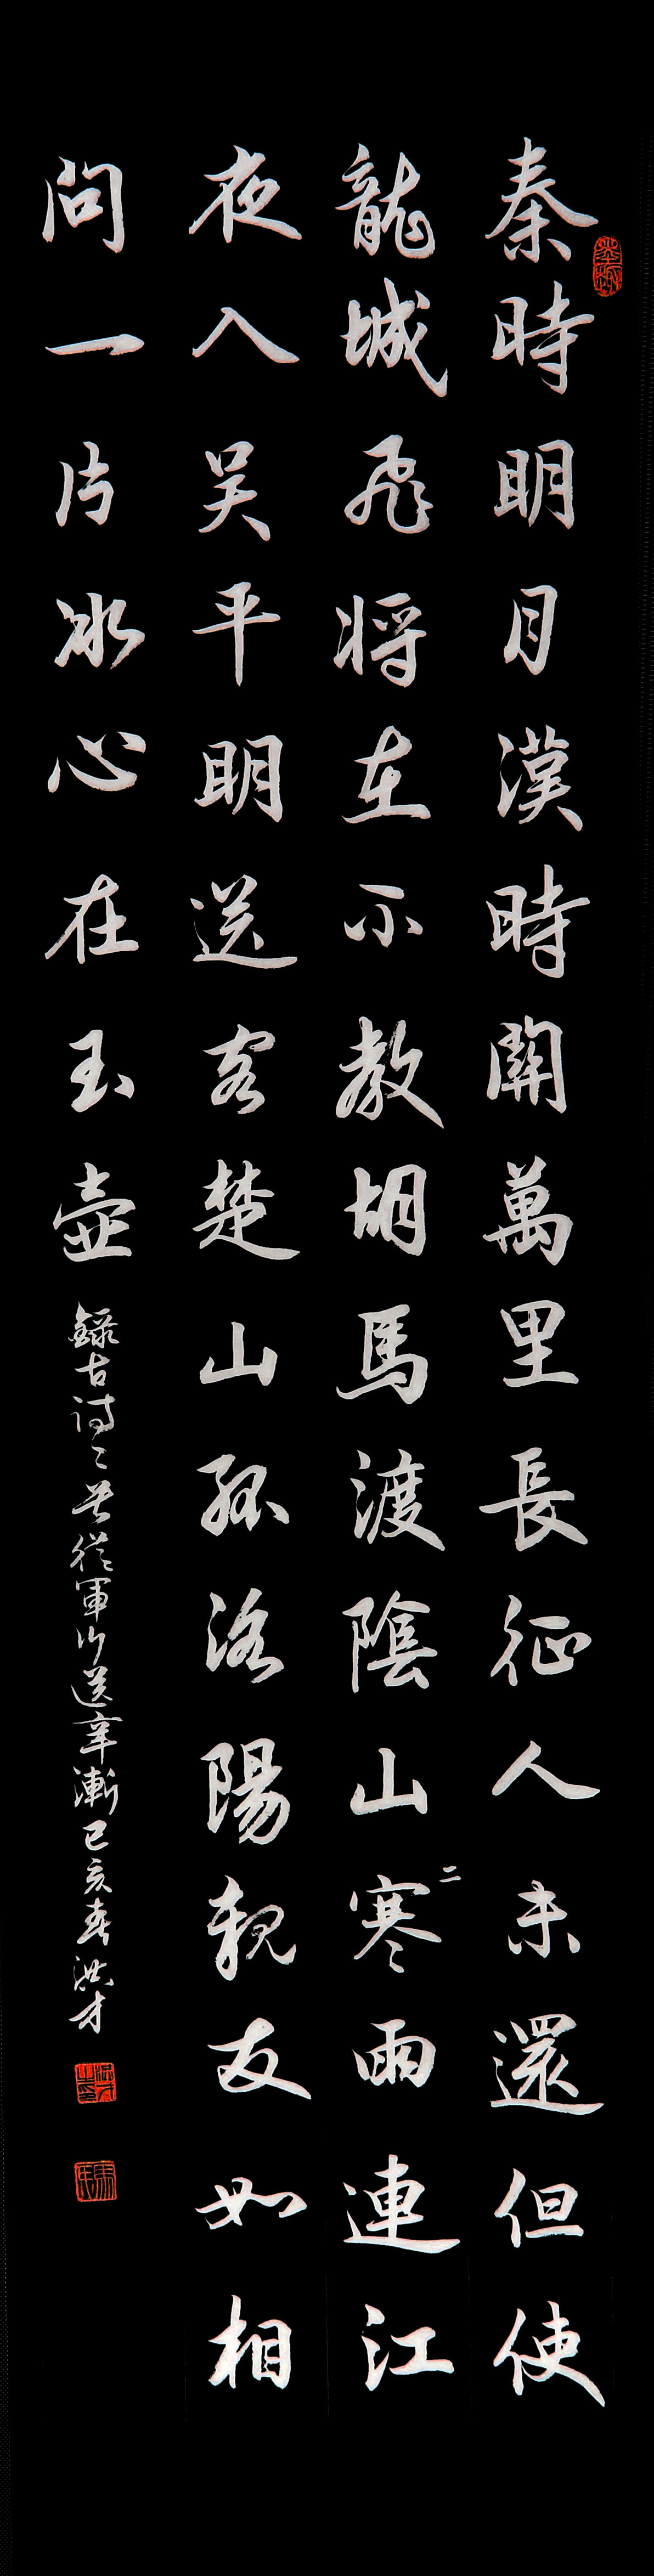 秦時明月漢時關萬里長征人未還但使
龍城飛将在不教胡馬渡陰山二寒雨連江
夜入吴平明送客楚山孤洛陽親友如相
問一片冰心在玉壺
錄古詩二首從軍行送辛漸己亥春洪才